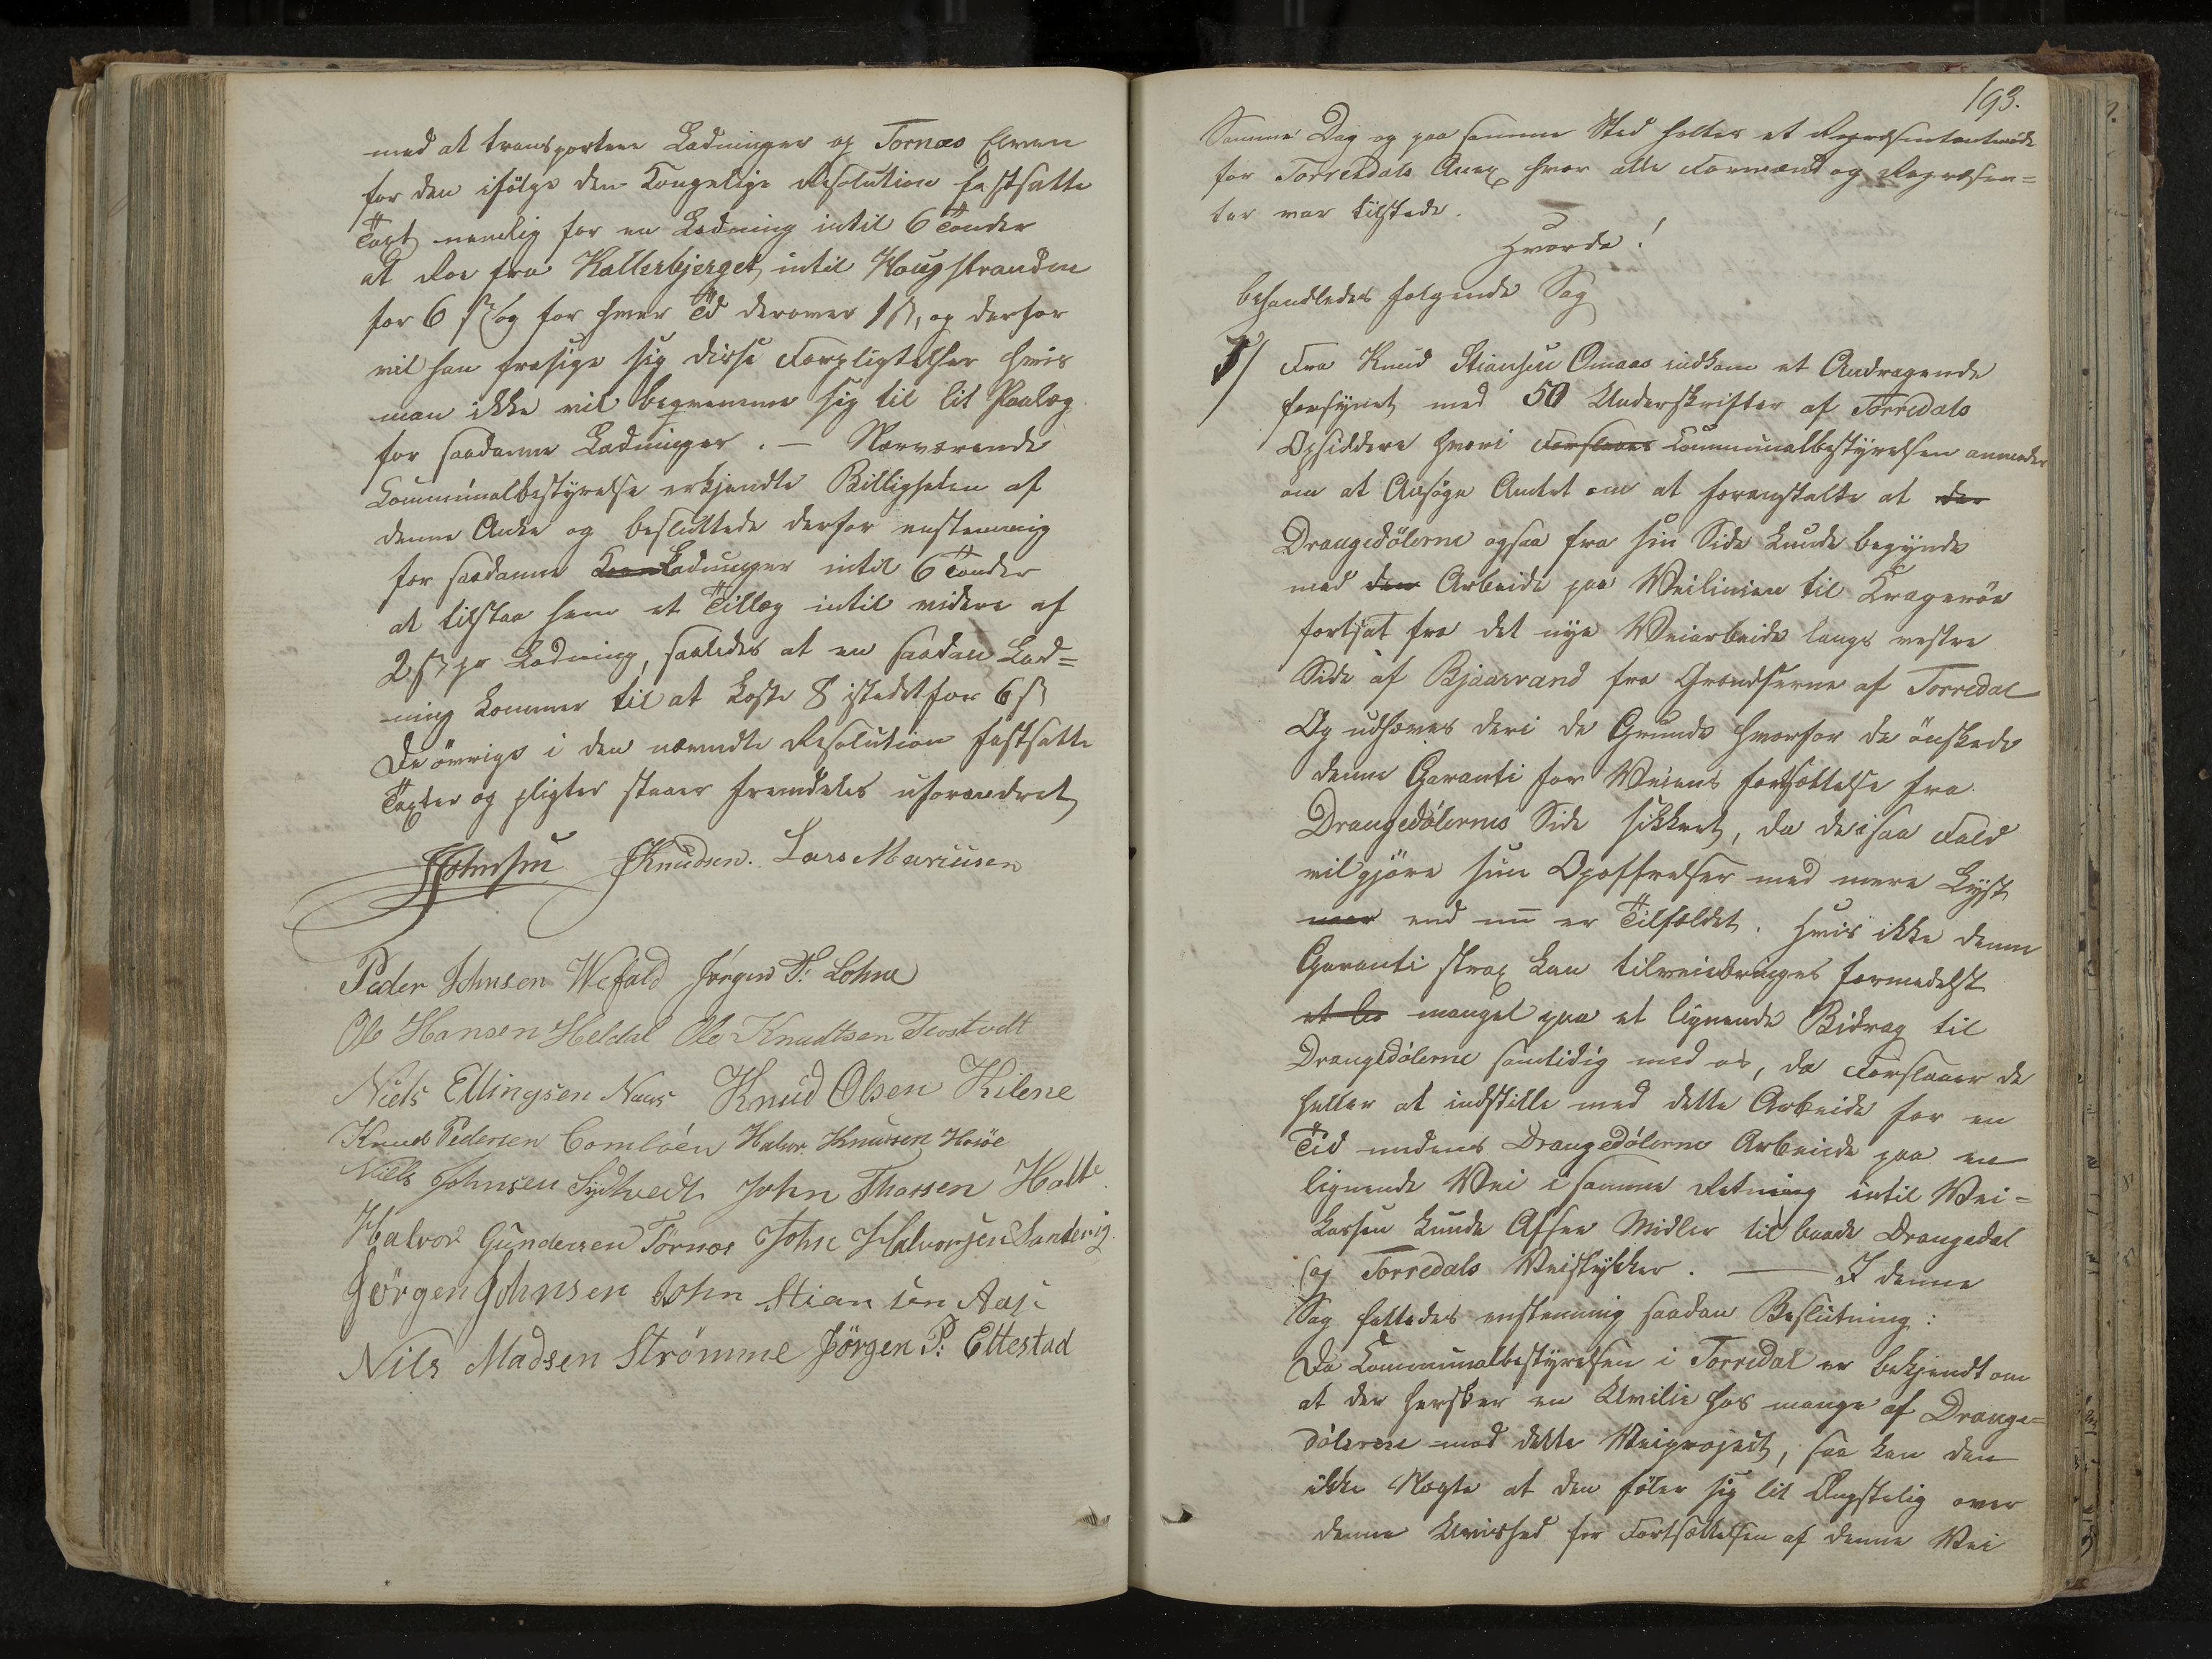 med at transportere Ladninger op Tornæs Elven
for den ifölge den Kongelige Resolution fastsatte
Taxt nemlig for en Ladning intil 6 Tönder
at Roe fra Kallerbjerget intil Haugstranden
for 6 ß og for hver Td derover 1 ß, og derfor
vil han frasige sig disse Forpligtelser hvis
man ikke vil beqvemme sig til lit Paalæg
for saadanne Ladninger. — Nærværende
Communalbestyrelse erkjendte Billigheden af
denne Anke og besluttede derfor enstemmig
for saadanne Ladninger intil 6 Tönder
at tilstaa ham et Tillæg intil videre af
2 ß pr Ladning, saaledes at en saadan Lad=
ning kommer til at koste 8 istedetfor 6 ß
De övrige i den nævndte Resolution fastsatte
Taxter og pligter staaer fremdeles uforandret
JJohnsen JKnudsen. Lars Mariusen
Peder Johnsen Wefald Jørgen T: Lohne
Ole Hansen Heldal Ole Knudtsen Frostvedt
Niels Ellingsen Naas Knud Olsen Kilene
Knud Pedersen Comloën Halvor Knutsen Hosöe
Niels Johnsen Sydtvedt John Thorsen Holte
Halvor Gundersen Törnes John Halvorsen Sandvig
Jörgen Johnsen John Stiansen Aase
Nils Madsen Strömme Jörgen P: Ettestad
193.
Samme Dag og paa samme Sted holtes et Repræsentantmöde
for Torredals Anex hvor alle Formænd og Repræsen=
ter var tilstede.
Hvorda!
behandledes følgende Sag
1/ Fra Knud Stiansen Omaas indkom et Andragende
forsynet med 50 Underskrifter af Torredals
Opsiddere hvori Forslaaes Communalbestyrelsen anmodes
om at Ansøge Amtet om at foranstalte at der
Drangedölerne ogsaa fra sin Side kunde begynde
med den Arbeide paa Veilinien til Kragerøe
fortsat fra det nye Veiarbeide langs vestre
Side af Bjaarvand fra Grændserne af Torredal
Og udhæves deri de Grunde hvorfor de önskede
denne Garanti for Veiens fortsættelse fra
Drangedölernes Side sikkret, da de isaa Fald
vil gjöre sine Opoffrelser med mere Lyst
mer end nu er Tilfældet. Hvis ikke denne
Garanti strax kan tilveiebringes formedelst
et li mangel paa et lignende Bidrag til
Drangedölerne samtidig med os, da Forslaaer de
heller at indstille med dette Arbeide for en
Tid medens Drangedölerne Arbeide paa en
lignende Vei i samme Retning intil Vei=
kassen kunde Afsee Midler til baade Drangedal
og Torredals Veistykker. — I denne
Sag fattedes enstemmig saadan Beslutning:
Da Communalbestyrelsen i Torredal er bekjendt om
at der hersker en Uvilie hos mange af Drange=
dölerne mod dette Veiproject, saa kan den
ikke Nægte at den föler sig lit Ængstelig over
denne Uvished for Fortsættelsen af denne Vei